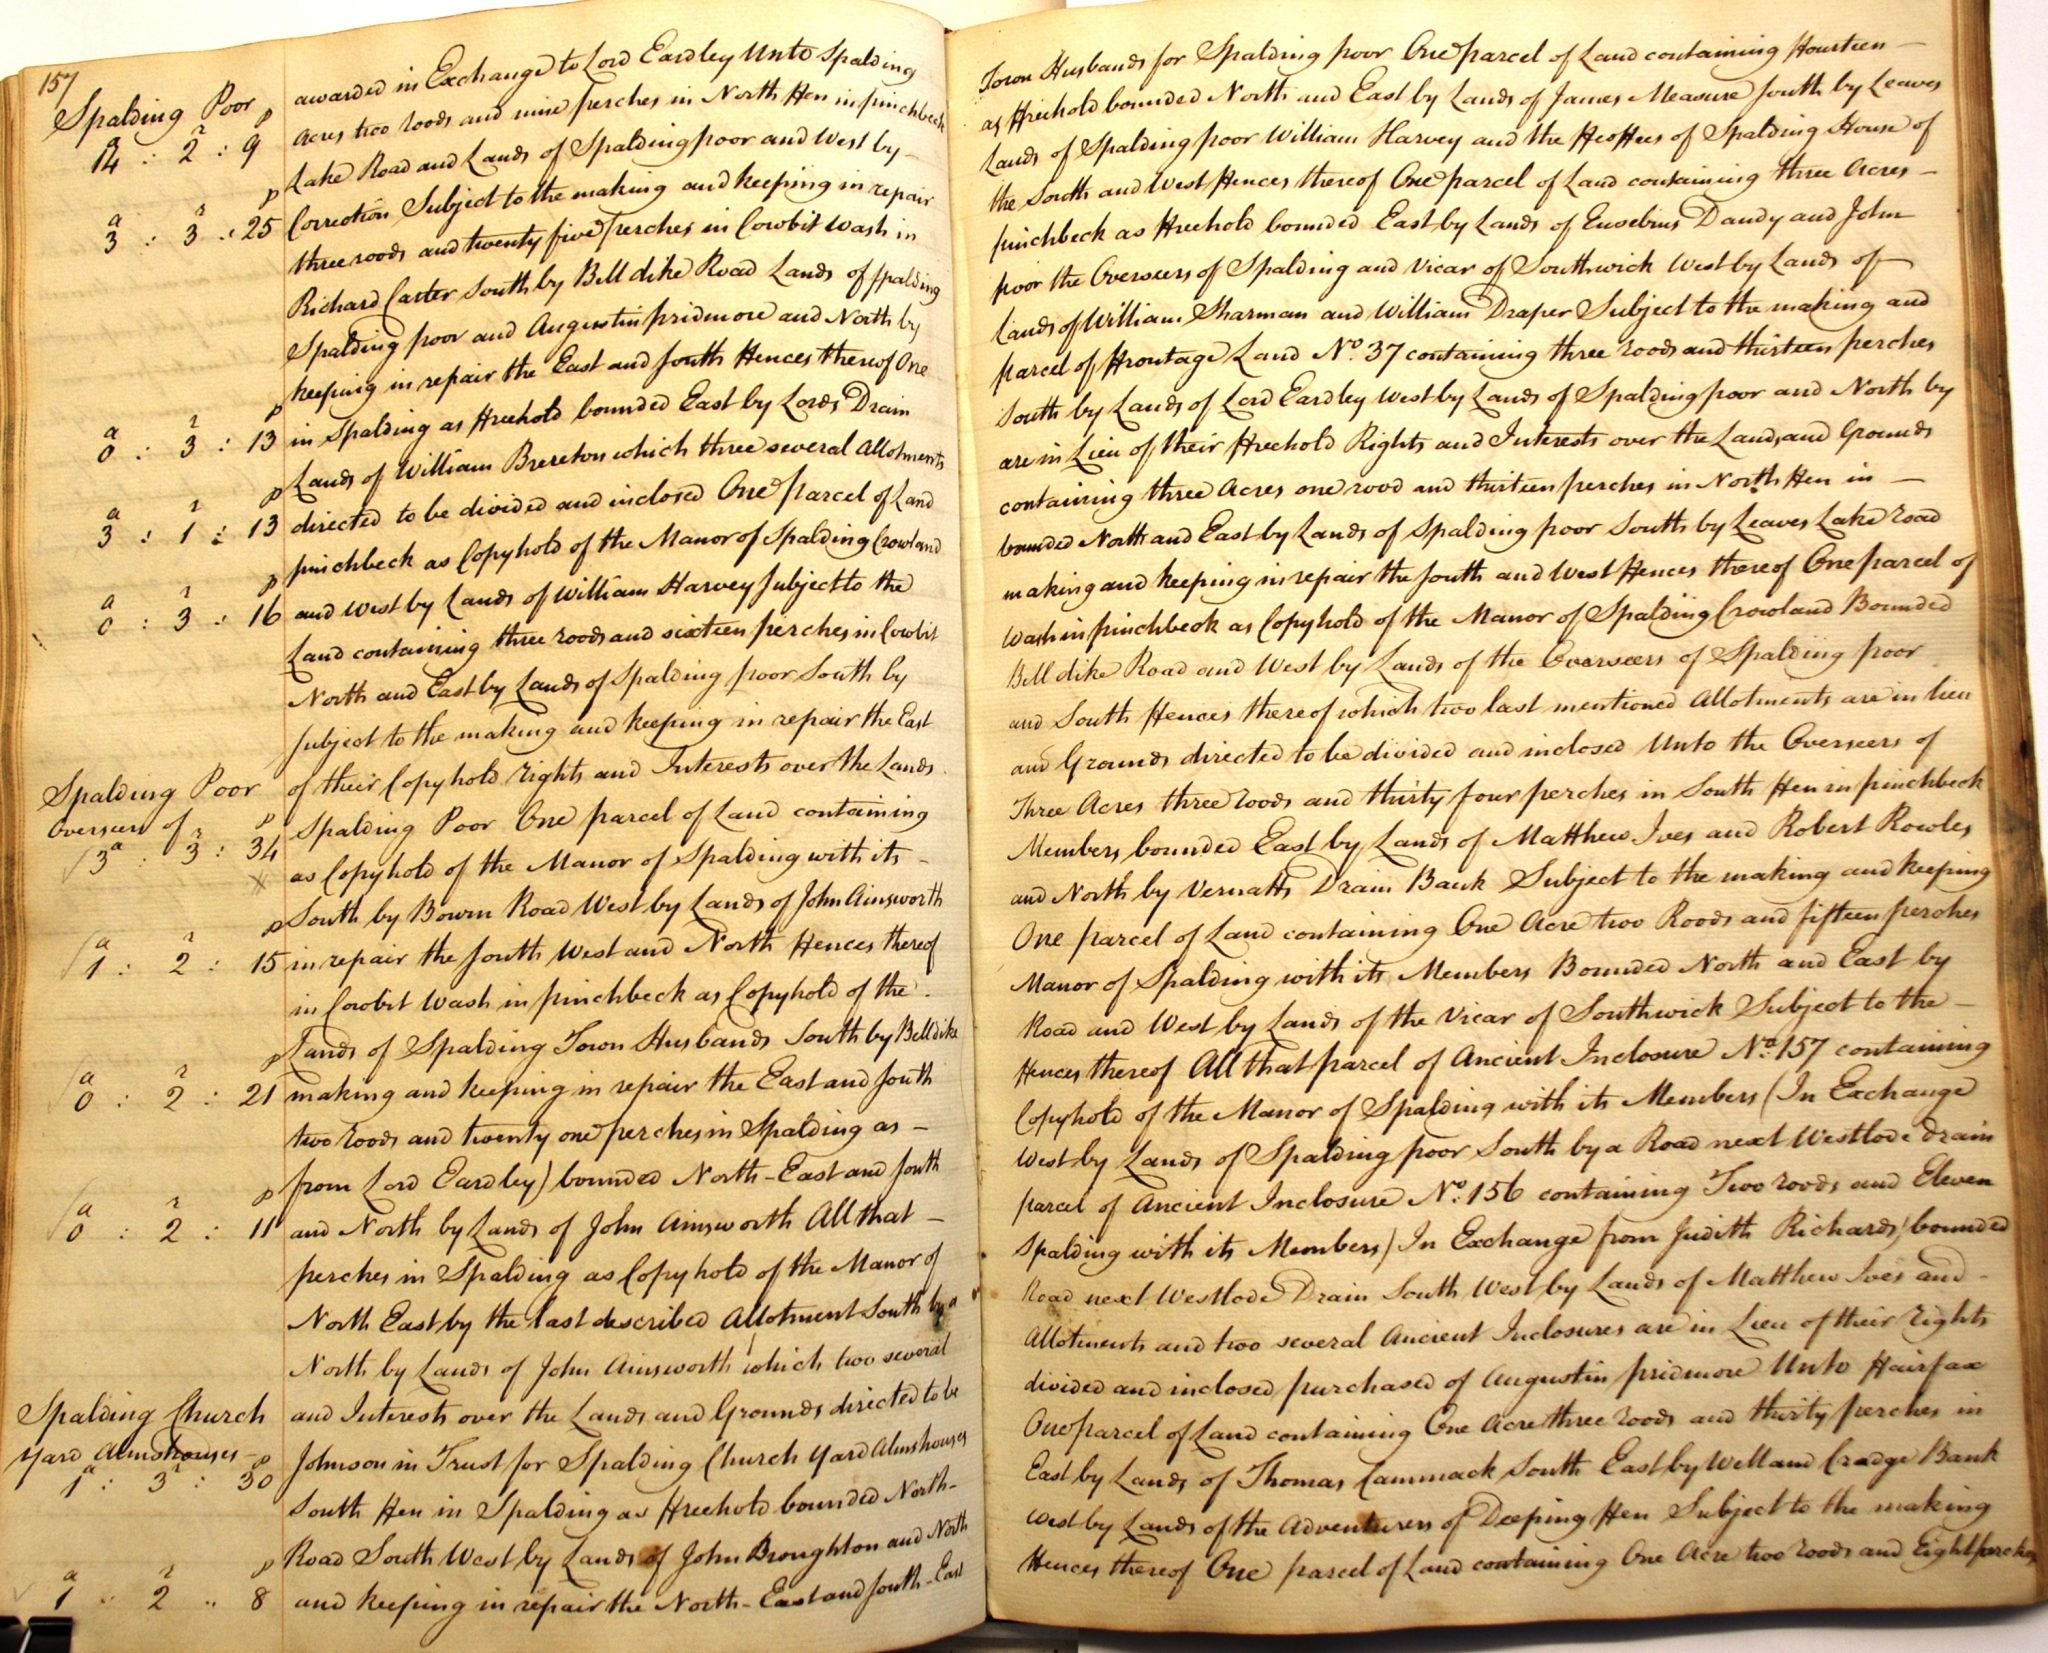 157
Spalding Poor
awarded in Exchange to Lord Eardley Unto Spalding Town Husbands for Spalding poor One parcel of Land containing Fourteen
a r p
14 : 2 : 9
Acres two roods and nine perches in North Fen in pinchbeck as Freehold bounded North and East by Lands of James Measure South by Leaves
Lake Road and Lands of Spalding poor and West by Lands of Spalding poor William Harvey and the Feoffees of Spalding House of
a r p
3 : 3 : 25
Correction Subject to the making and keeping in repair the South and West Fences thereof One parcel of Land containing three Acres
three roods and twenty five perches in Cowbit Wash in pinchbeck as Freehold bounded East by Lands of Eusebius Dandy and John
Richard Carter South by Bell dike Road Lands of Spalding poor the Overseers of Spalding and Vicar of Southwick West by Lands of
Spalding poor and Augustin pridmore and North by Lands of William Sharman and William Draper Subject to the making and
keeping in repair the East and South Fences thereof One parcel of Frontage Land No. 37 containing three roods and thirteen perches
a r p
0 : 3 : 13
in Spalding as Freehold bounded East by Lords Drain South by Lands of Lord Eardley West by Lands of Spalding poor and North by
Lands of William Brereton which three several Allotments are in Lieu of their Freehold Rights and Interests over the Lands and Grounds
a r p
3 : 1 : 13
directed to be divided and inclosed One parcel of Land containing three Acres one rood and thirteen perches in North Fen in
pinchbeck as Copyhold of the Manor of Spalding Crowland bounded North and East by Lands of Spalding poor South by Leaves Lake road
a r p
0 : 3 : 16
and West by Lands of William Harvey Subject to the making and keeping in repair the South and West Fences thereof One parcel of
Land containing three roods and sixteen perches in Cowbit Wash in pinchbeck as Copyhold of the Manor of Spalding Crowland Bounded
North and East by Lands of Spalding poor South by Bell dike Road and West by Lands of the Overseers of Spalding poor
Subject to the making and keeping in repair the East and South Fences thereof which two last mentioned Allotments are in lieu
of their Copyhold rights and Interests over the Lands and Grounds directed to be divided and inclosed Unto the Overseers of
Spalding Poor
Overseers of
a r p
3 : 3 : 34
Spalding Poor One parcel of Land containing Three Acres three roods and thirty four perches in South Fen in pinchbeck
as Copyhold of the Manor of Spalding with its Members bounded East by Lands of Matthew Ives and Robert Rowles
South by Bourn Road West by Lands of John Ainsworth and North by Vernatts Drain Bank Subject to the making and keeping
a r p
1 : 2 : 15
in repair the South West and North Fences thereof One parcel of Land containing One Acre two Roods and fifteen perches
in Cowbit Wash in pinchbeck as Copyhold of the Manor of Spalding with its Members Bounded North and East by
Lands of Spalding Town Husbands South by Bell dike Road and West by Lands of the Vicar of Southwick Subject to the
a r p
0 : 2 : 21
making and keeping in repair the East and South Fences thereof All that parcel of Ancient Inclosure No. 157 containing
two roods and twenty one perches in Spalding as Copyhold of the Manor of Spalding with its Members (In Exchange
from Lord Eardley) bounded North-East and South West by Lands of Spalding poor South by a Road next Westlode drain
a r p
0 : 2 : 11
and North by Lands of John Ainsworth All that parcel of Ancient Inclosure No. 156 containing Two roods and Eleven
perches in Spalding as Copyhold of the Manor of Spalding with its Members (In Exchange from Judith Richards) bounded
North East by the last described Allotment South by a Road next Westlode Drain South West by Lands of Matthew Ives and
North by Lands of John Ainsworth which two several Allotments and two several Ancient Inclosures are in Lieu of their rights
and Interests over the Lands and Grounds directed to be divided and inclosed purchased of Augustin pridmore Unto Fairfax
Spalding Church
Yard Almshouses
a r p
1 : 3 : 30
Johnson in Trust for Spalding Church Yard Almshouses One parcel of Land containing One Acre three roods and thirty perches in
South Fen in Spalding as Freehold bounded North- East by Lands of Thomas Cammack South East by Welland Cradge Bank
Road South West by Lands of John Broughton and North West by Lands of the Adventurers of Deeping Fen Subject to the making
a r p
1 : 2 : 8
and keeping in repair the North-East and South-East Fences thereof One parcel of Land containing One Acre two roods and Eight perches